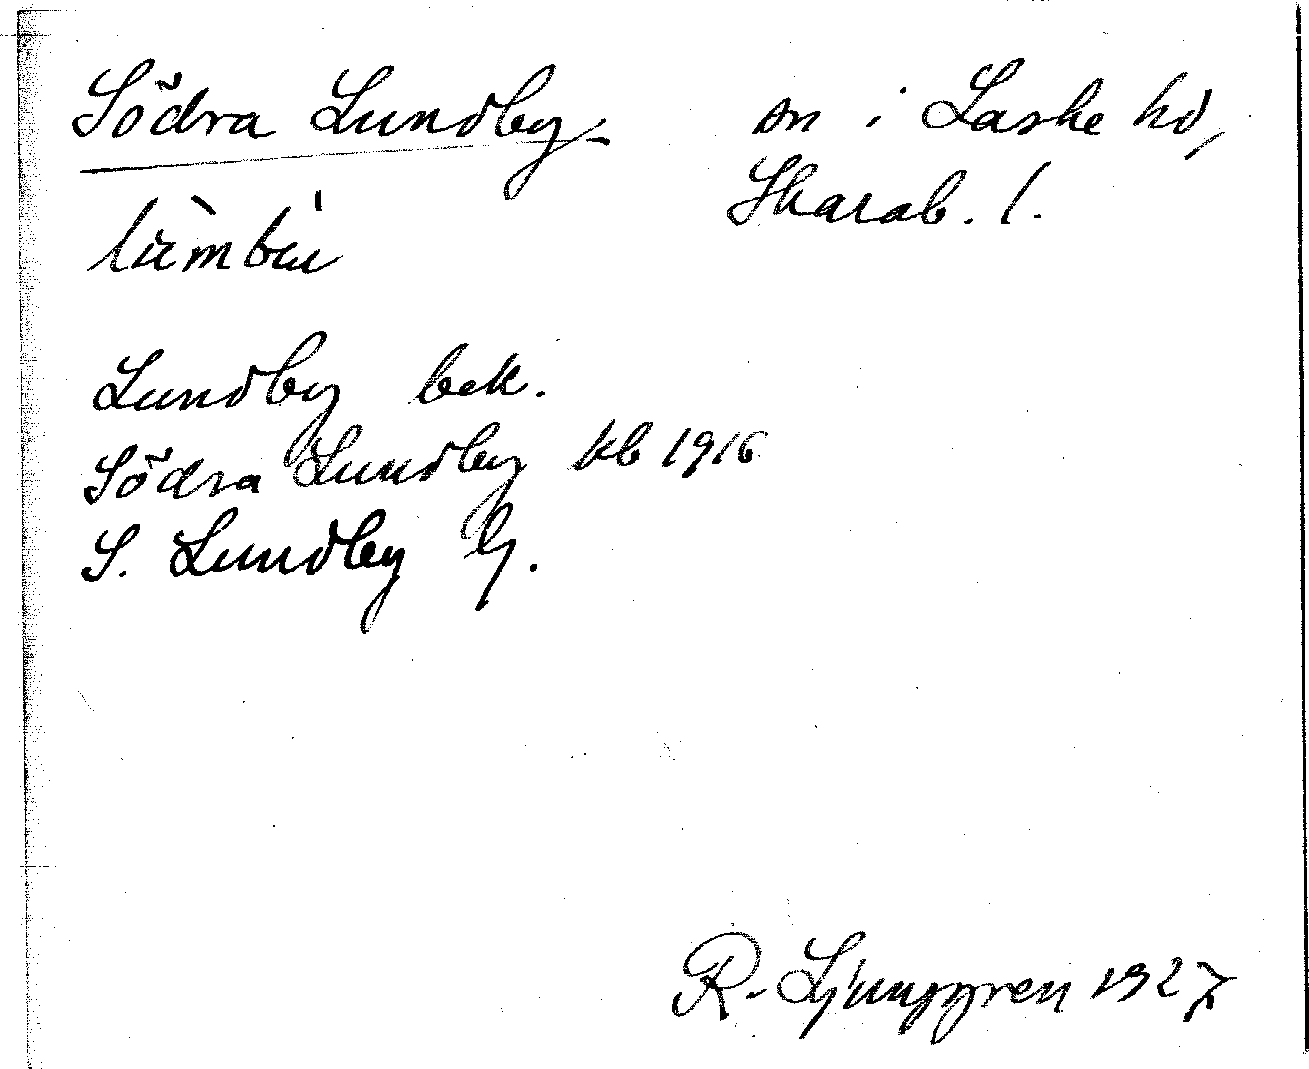 Södra Lundby sn i Laske hd,
Skarab. l.
Lundby bek.
Södra Lundby kb 1916
S. Lundby G.
R. Ljunggren 1927